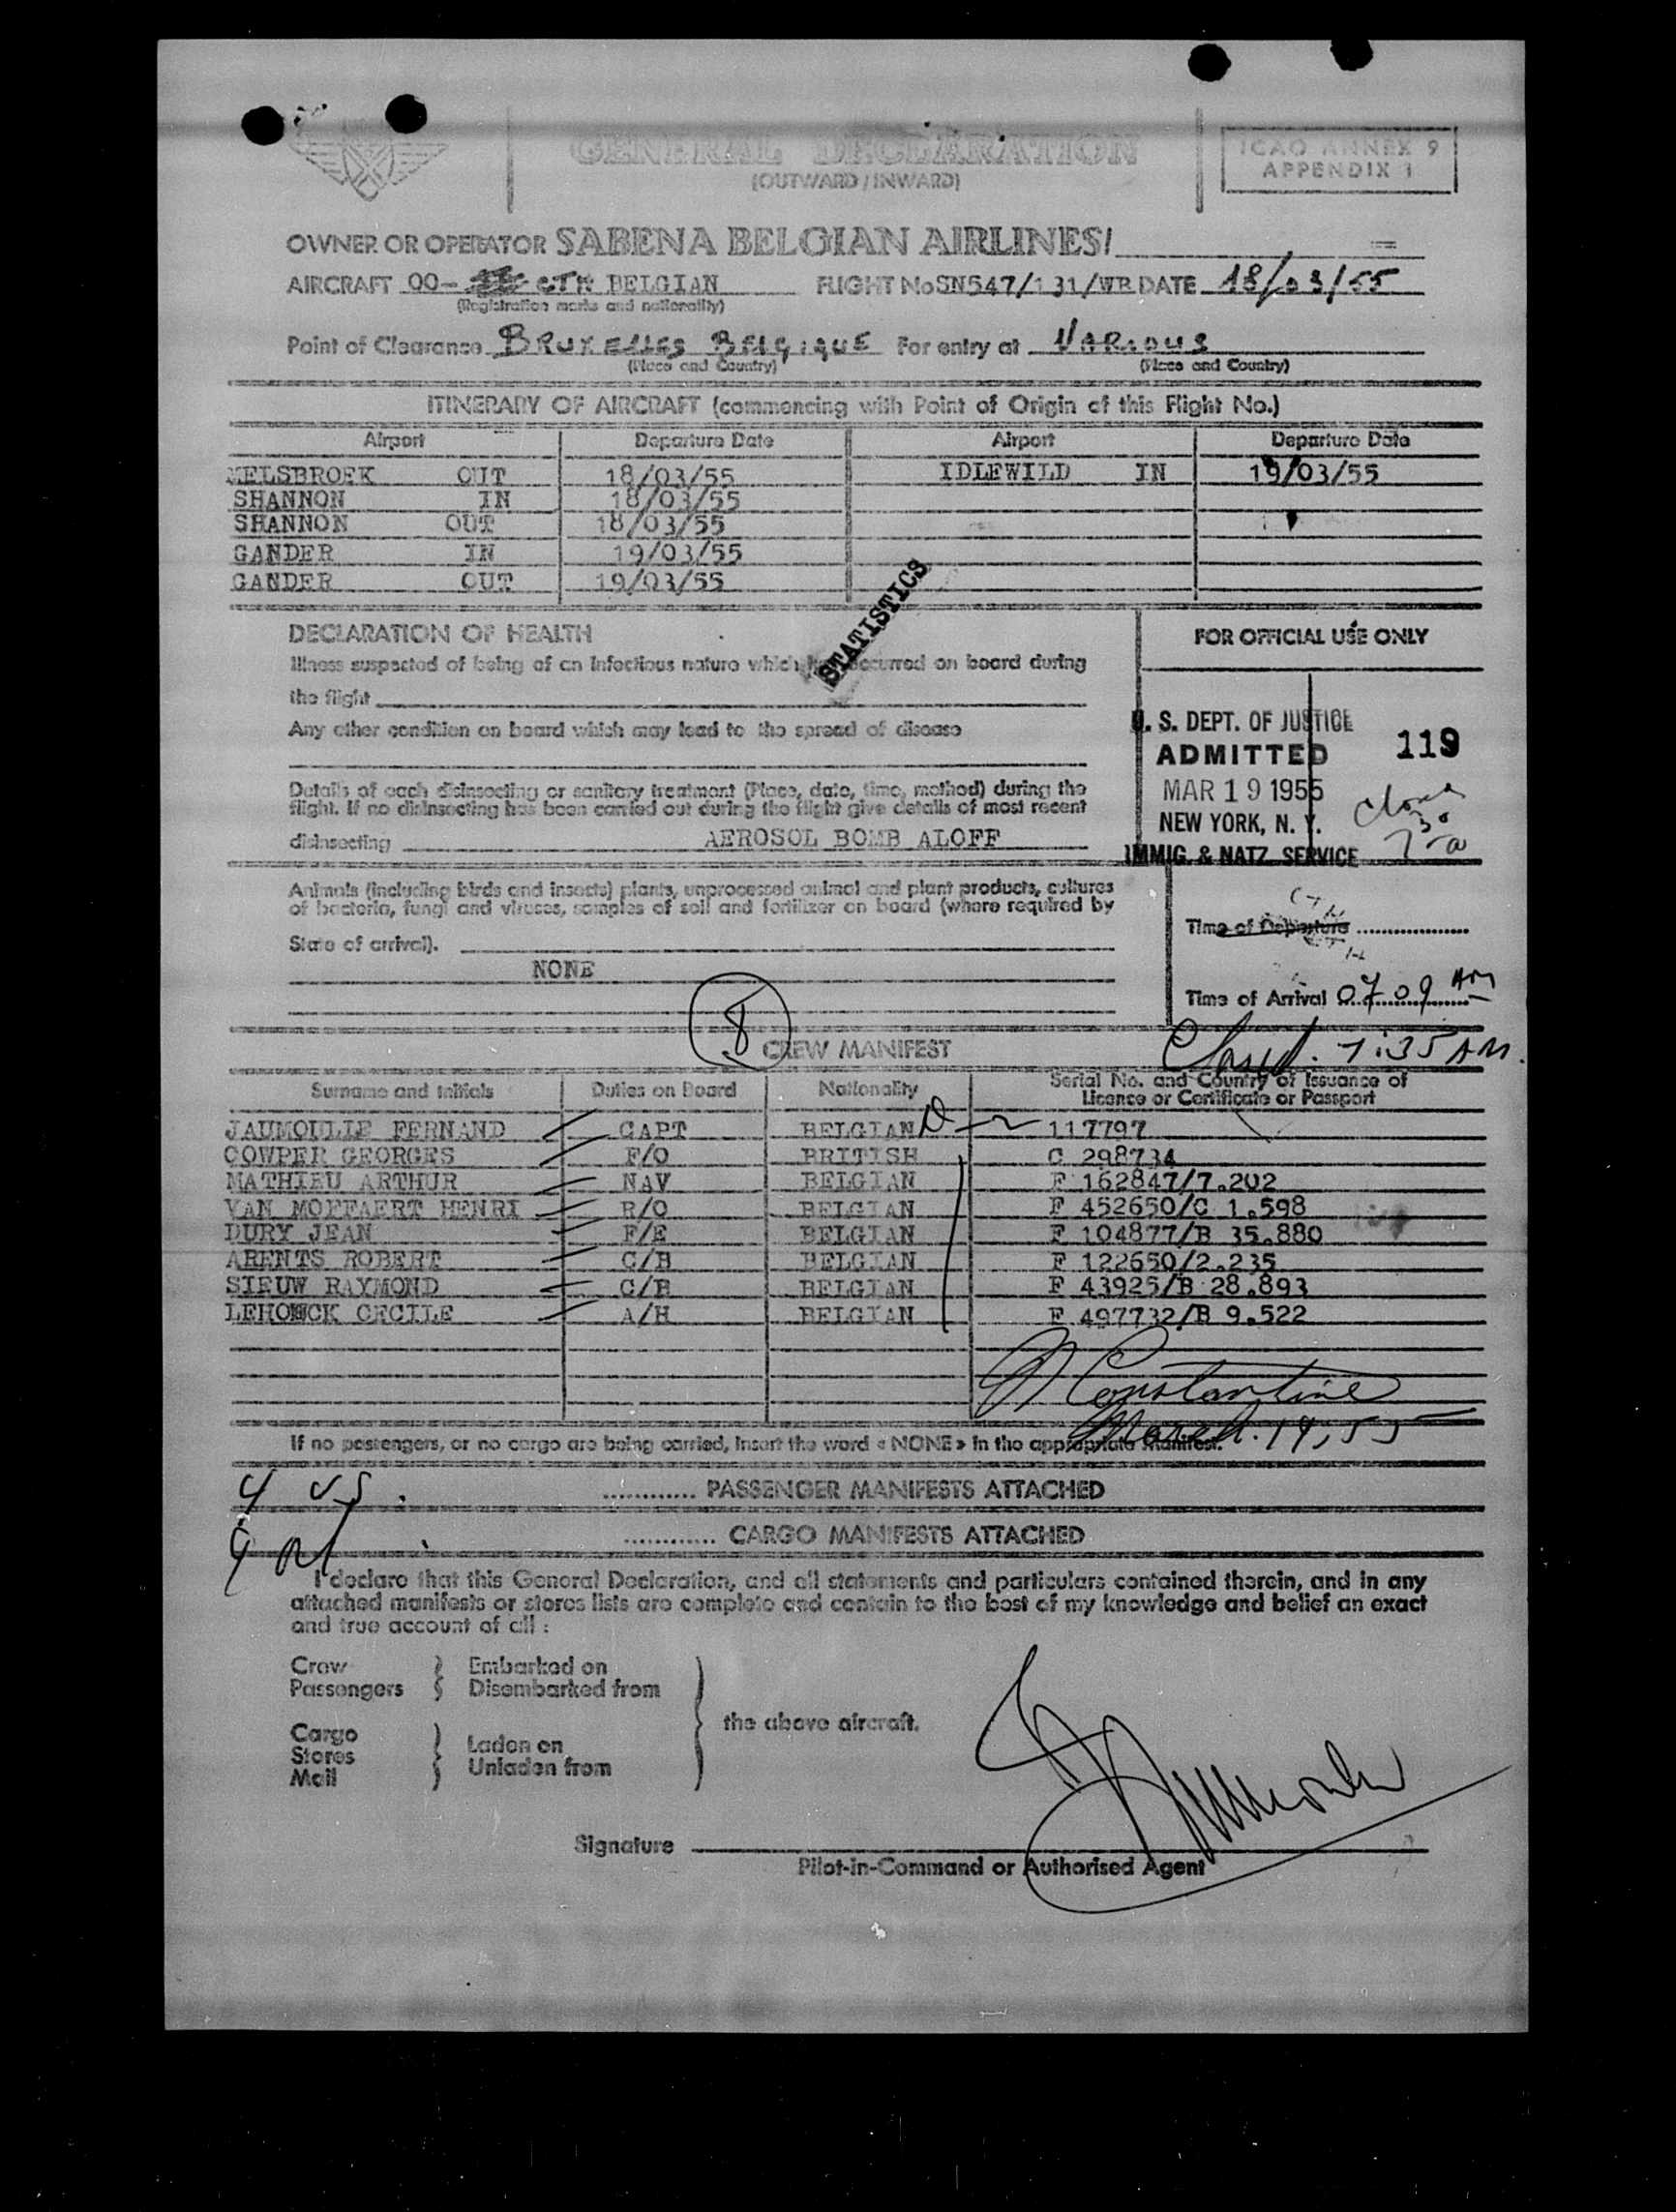 GENERAL DECLARATION
(OUTWARD / INWARD)
ICAO ANNEX 9
APPENDIX 1
OWNER OR OPERATOR SABENA BELGIAN AIRLINES/
AIRCRAFT OO- CTH BELGIAN FLIGHT No SN547/131/WR DATE 18/03/55
(Registration marks and nationality)
Point of Clearance BRUXELLES BELGIQUE For entry at VARIOUS
(Place and Country) (Place and Country)
ITINERARY OF AIRCRAFT (commencing with Point of Origin of this Flight No.)
Airport Departure Date Airport Departure Date
MELSBROEK OUT 18/03/55 IDLEWILD IN 19/03/55
SHANNON IN 18/03/55
SHANNON OUT 18/03/55
GANDER IN 19/03/55
GANDER OUT 19/03/55
STATISTICS
DECLARATION OF HEALTH
Illness suspected of being of an infectious nature which has occurred on board during
the flight
Any other condition on board which may lead to the spread of disease
Details of each disinsecting or sanitary treatment (Place, date, time, method) during the
flight. If no disinsecting has been carried out during the flight give details of most recent
disinsecting AEROSOL BOMB ALOFF
FOR OFFICIAL USE ONLY
U. S. DEPT. OF JUSTICE
ADMITTED 119
MAR 19 1955
NEW YORK, N. Y.
IMMIG. & NATZ. SERVICE
Animals (including birds and insects) plants, unprocessed animal and plant products, cultures
of bacteria, fungi and viruses, samples of soil and fertilizer on board (where required by
State of arrival).
NONE
Time of Departure
Time of Arrival 07.09 AM
Closed. 7:35 AM.
8
CREW MANIFEST
Surname and Initials Duties on Board Nationality Serial No. and Country of Issuance of
Licence or Certificate or Passport
JAUMOULLE FERNAND CAPT BELGIAN 117797
COWPER GEORGES F/O BRITISH C 298734
MATHIEU ARTHUR NAV BELGIAN F 162847/7.202
VAN MOFFAERT HENRI R/O BELGIAN F 452650/C 1.598
DURY JEAN F/E BELGIAN F 104877/B 35.880
ARENTS ROBERT C/H BELGIAN F 122650/2.235
SIEUW RAYMOND C/H BELGIAN F 43925/B 28.893
LEHOUCK CECILE A/H BELGIAN F 497732/B 9.522
Constantine
March. 19, 55
If no passengers, or no cargo are being carried, insert the word « NONE » in the appropriate Manifest.
PASSENGER MANIFESTS ATTACHED
CARGO MANIFESTS ATTACHED
I declare that this General Declaration, and all statements and particulars contained therein, and in any
attached manifests or stores lists are complete and contain to the best of my knowledge and belief an exact
and true account of all :
Crew Embarked on
Passengers Disembarked from
the above aircraft.
Cargo
Stores Laden on
Mail Unladen from
Signature
Pilot-in-Command or Authorised Agent